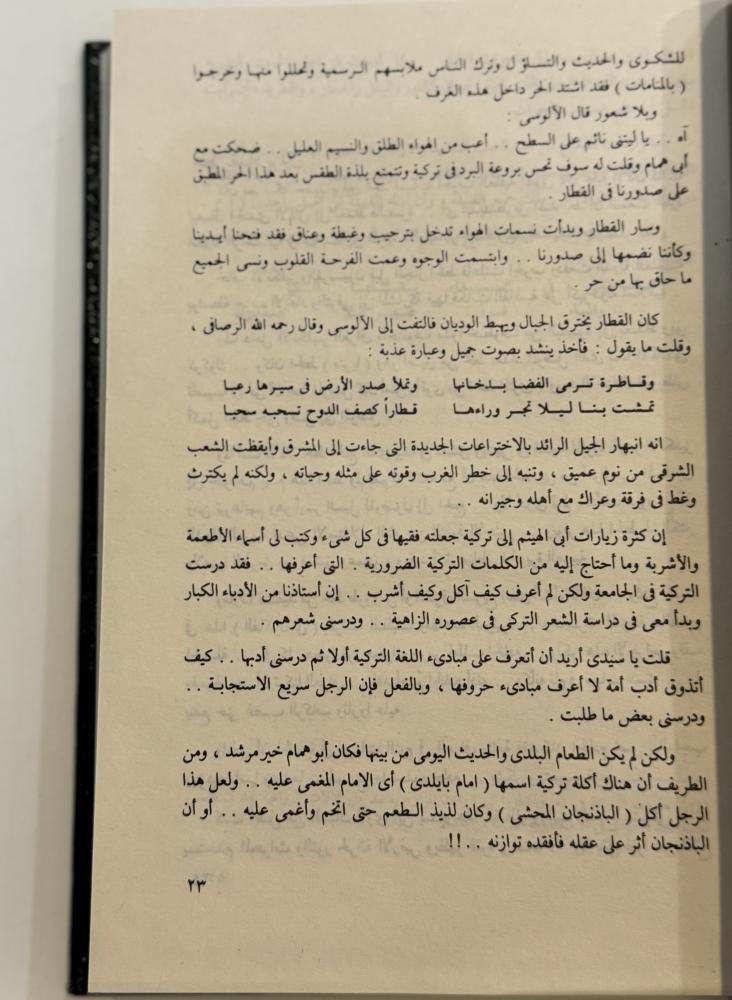 للشكوى والحديث والتساؤل وترك الناس ملابسهم الرسمية وتحللوا منها وخرجوا
( بالمنامات ) فقد اشتد الحر داخل هذه الغرف .
وبلا شعور قال الآلوسى :
آه . . يا ليتنى نائم على السطح . . أعب من الهواء الطلق والنسيم العليل . . ضحكت مع
أبى همام وقلت له سوف تحس بروعة البرد فى تركية وتتمتع بلذة الطقس بعد هذا الحر المطبق
على صدورنا فى القطار .
وسار القطار وبدأت نسمات الهواء تدخل بترحيب وغبطة وعناق فقد فتحنا أيدينا
وكأننا نضمها إلى صدورنا . . وابتسمت الوجوه وعمت الفرحة القلوب ونسى الجميع
ما حاق بها من حر .
كان القطار يخترق الجبال ويهبط الوديان فالتفت إلى الآلوسى وقال رحمه الله الرصافى ،
وقلت ما يقول : فأخذ ينشد بصوت جميل وعبارة عذبة :
وقاطرة ترمى الفضا بدخانها وتملأ صدر الأرض فى سيرها رعبا
تمشت بنا ليلا تجر وراءها قطاراً كصف الدوح تسحبه سحبا
انه انبهار الجيل الرائد بالاختراعات الجديدة التى جاءت إلى المشرق وأيقظت الشعب
الشرقى من نوم عميق ، وتنبه إلى خطر الغرب وقوته على مثله وحياته ، ولكنه لم يكترث
وغط فى فرقة وعراك مع أهله وجيرانه . .
إن كثرة زيارات أبى الهيثم إلى تركية جعلته فقيها فى كل شىء وكتب لى أسماء الأطعمة
والأشربة وما أحتاج إليه من الكلمات التركية الضرورية . التى أعرفها . . فقد درست
التركية فى الجامعة ولكن لم أعرف كيف آكل وكيف أشرب . . إن أستاذنا من الأدباء الكبار
وبدأ معى فى دراسة الشعر التركى فى عصوره الزاهية . . ودرسنى شعرهم .
قلت يا سيدى أريد أن أتعرف على مبادىء اللغة التركية أولا ثم درسنى أدبها . . كيف
أتذوق أدب أمة لا أعرف مبادىء حروفها ، وبالفعل فإن الرجل سريع الاستجابة . .
ودرسنى بعض ما طلبت .
ولكن لم يكن الطعام البلدى والحديث اليومى من بينها فكان أبو همام خير مرشد ، ومن
الطريف أن هناك أكلة تركية اسمها ( امام بايلدى ) أى الامام المغمى عليه . . ولعل هذا
الرجل أكل ( الباذنجان المحشى ) وكان لذيذ الطعم حتى اتخم وأغمى عليه . . أو أن
الباذنجان أثر على عقله فأفقده توازنه . . !!
٢٣